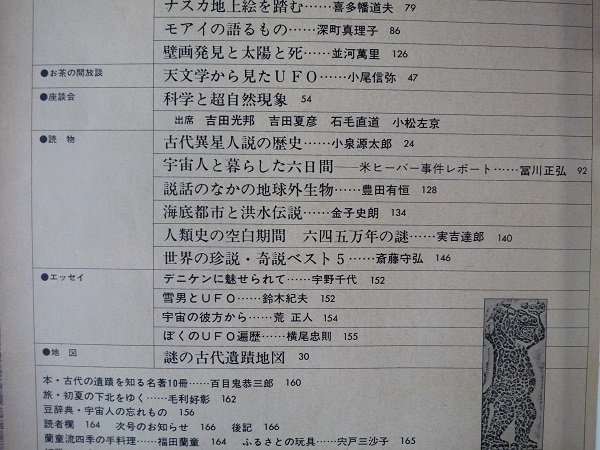 ナスカ地上絵を踏む……喜多幡道夫 79
モアイの語るもの……深町真理子 86
壁画発見と太陽と死……並河萬里 126
●お茶の間放談 天文学から見たUFO……小尾信弥 47
●座談会 科学と超自然現象 54
出席 吉田光邦 吉田夏彦 石毛直道 小松左京
●読物 古代異星人説の歴史……小泉源太郎 24
宇宙人と暮らした六日間――米ヒーバー事件レポート……冨川正弘 92
説話のなかの地球外生物……豊田有恒 128
海底都市と洪水伝説……金子史朗 134
人類史の空白期間 六四五万年の謎……実吉達郎 140
世界の珍説・奇説ベスト5……斎藤守弘 146
●エッセイ デニケンに魅せられて……宇野千代 152
雪男とUFO……鈴木紀夫 152
宇宙の彼方から……荒 正人 154
ぼくのUFO遍歴……横尾忠則 155
●地図 謎の古代遺蹟地図 30
本・古代の遺蹟を知る名著10冊……百目鬼恭三郎 160
旅・初夏の下北をゆく……毛利好彰 162
豆辞典・宇宙人の忘れもの 156
読者欄 164 次号のお知らせ 166 後記 166
蘭童流四季の手料理……福田蘭童 164 ふるさとの玩具……宍戸三沙子 165